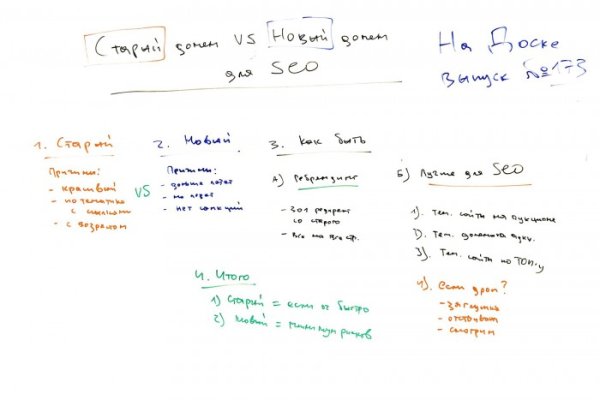 Старый домен VS Новый домен
для SEO
На Доске
выпуск №173
1. Старый
Причины:
- красивый
- по тематике
с ссылками
- с возрастом
VS
2. Новый
Причины:
- дольше
- не
- нет санкций
3. Как быть
А) Ребрендинг
- 301 редирект
со старого
- Все на все стр.
Б) Лучше для SEO
1). Тем. сайты на аукционе
2). Тем. домена аукц.
3). Тем. сайты по ТОП-у
4). Если дроп?
- заглушка
- отстойник
- смотрим
4. Итого
1) Старый = если ок быстро
2) Новый = минимум рисков